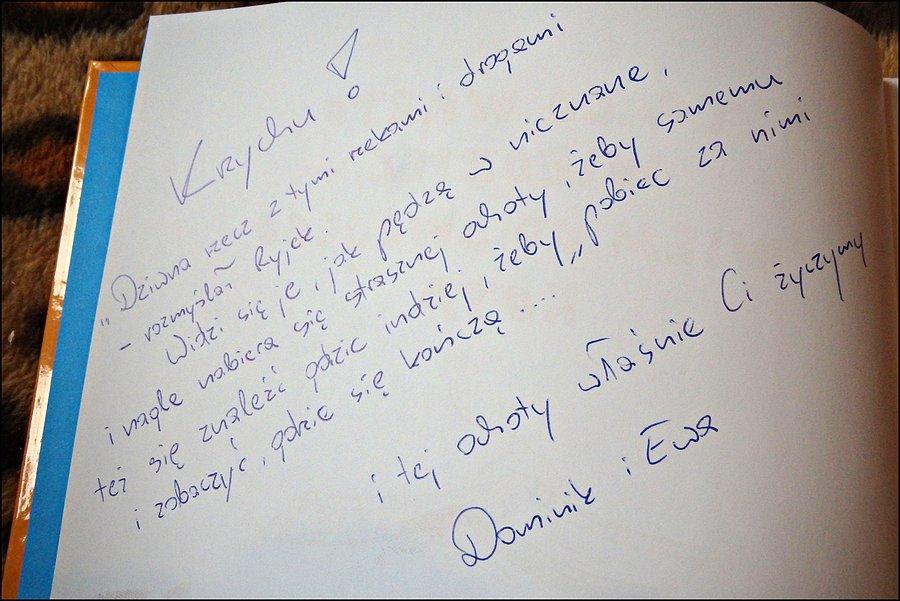 Krzychu!
"Dziwna rzecz z tymi rzekami i drogami
- rozmyślał Ryjek.
Widzi się je, jak pędzą w nieznane,
i nagle nabiera się strasznej ochoty, żeby samemu
też się znaleźć gdzie indziej, żeby pobiec za nimi
i zobaczyć, gdzie się kończą....„
i tej ochoty właśnie Ci życzymy
Dominik i Ewa